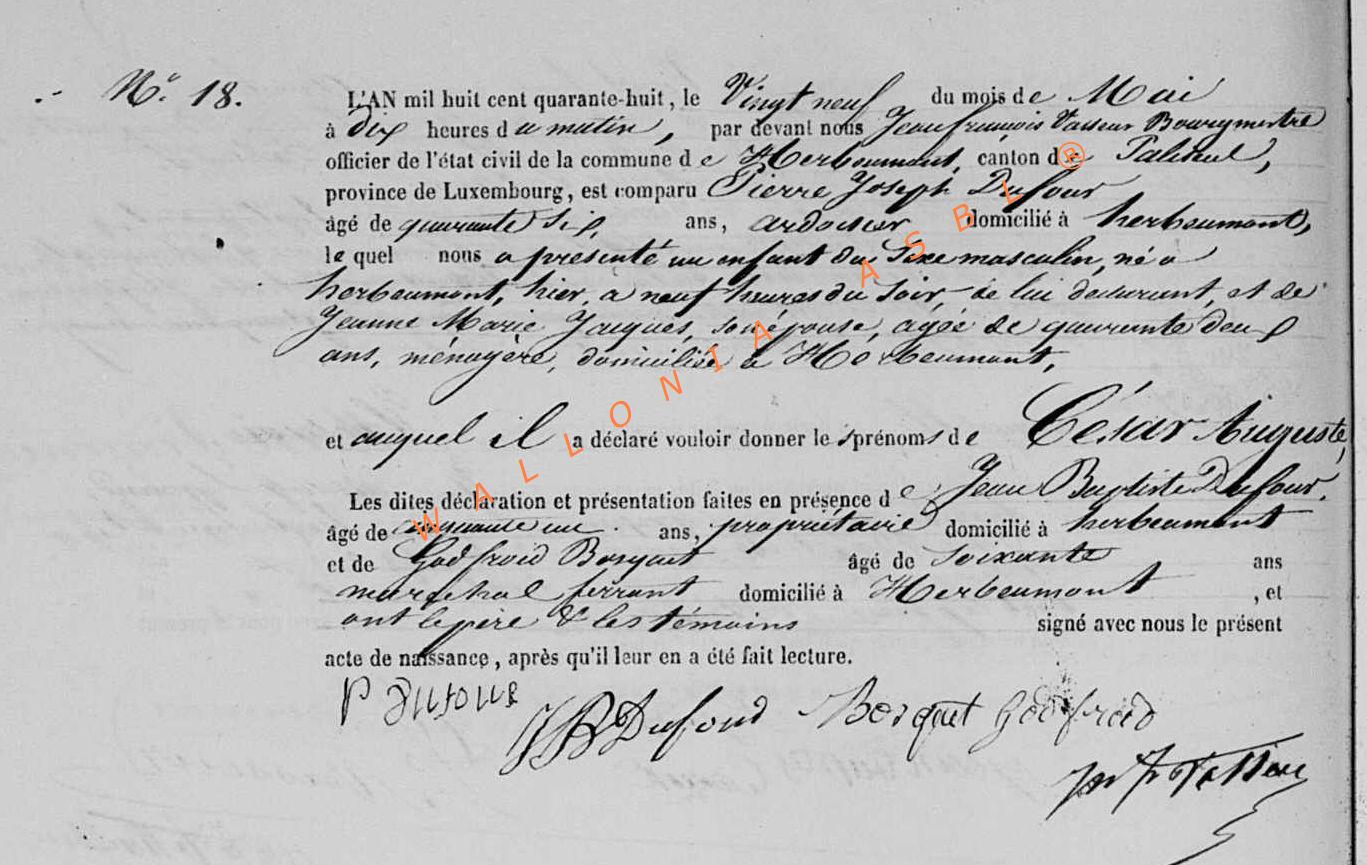 N° 18.
L'AN mil huit cent quarante-huit, le Vingt neuf du mois de Mai
à dix heures du matin, par devant nous Jean françois Vasseur Bourgmestre
officier de l'état civil de la commune de Herbeumont, canton de Paliseul,
province de Luxembourg, est comparu Pierre Joseph Dufour
âgé de quarante six, ans, ardoisier domicilié à herbeumont,
lequel nous a présenté un enfant du Sexe masculin, né a
herbeumont, hier, a neuf heures du soir, de lui déclarant, et de
Jeanne Marie Jacques, son épouse, agée de quarante deux
ans, ménagère, domiciliée à Herbeumont,
et auquel il a déclaré vouloir donner les prénoms de César Auguste,
Les dites déclaration et présentation faites en présence de Jean Baptiste Dufour,
âgé de cinquante un ans, propriétaire domicilié à herbeumont
et de Godfroid Bosquet âgé de soixante ans
marechal ferrant domicilié à Herbeumont, et
ont le père & les témoins signé avec nous le présent
acte de naissance, après qu'il leur en a été fait lecture.
P Dufour
JB Dufour Bosquet Godfroid
Vasseur
WALLONIA ASBL ®